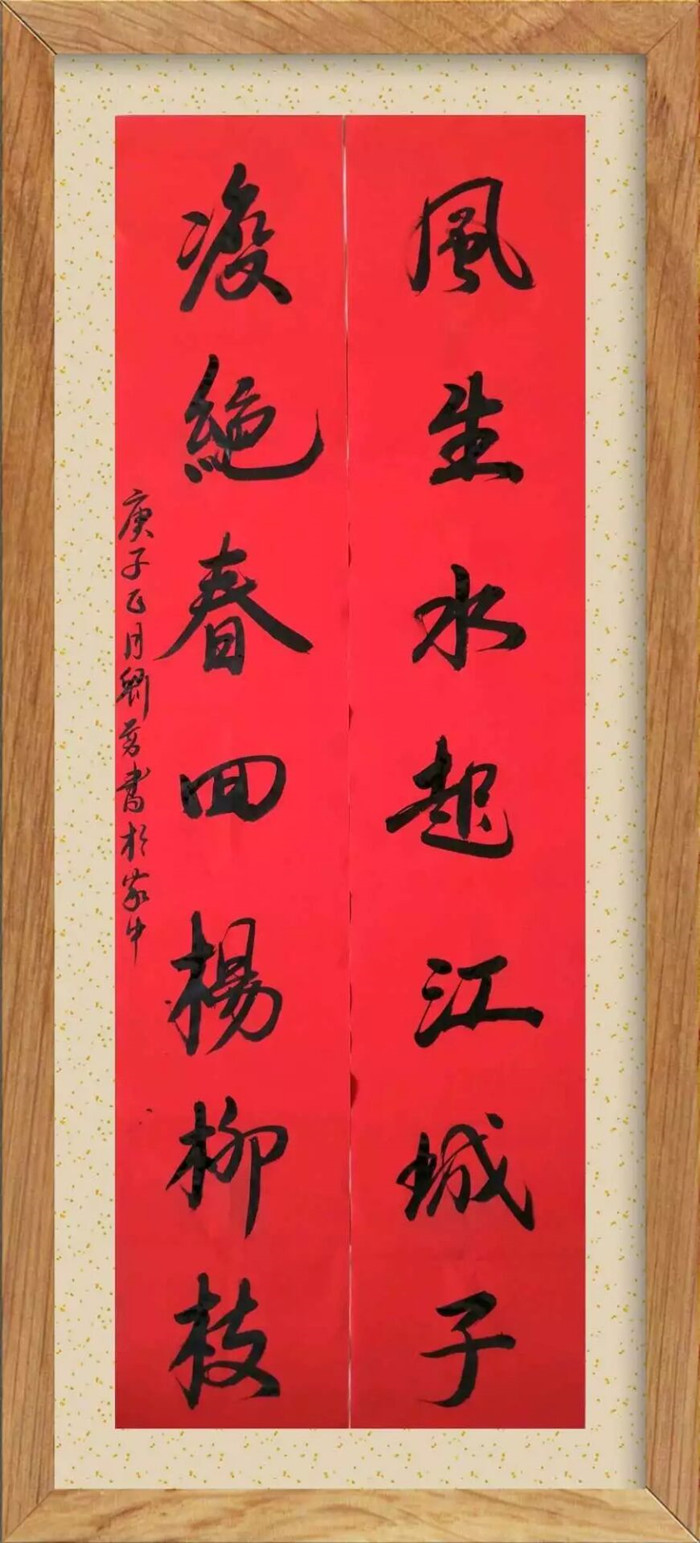 風生水起江城子
疫絕春回楊柳枝
庚子正月卿書於家中